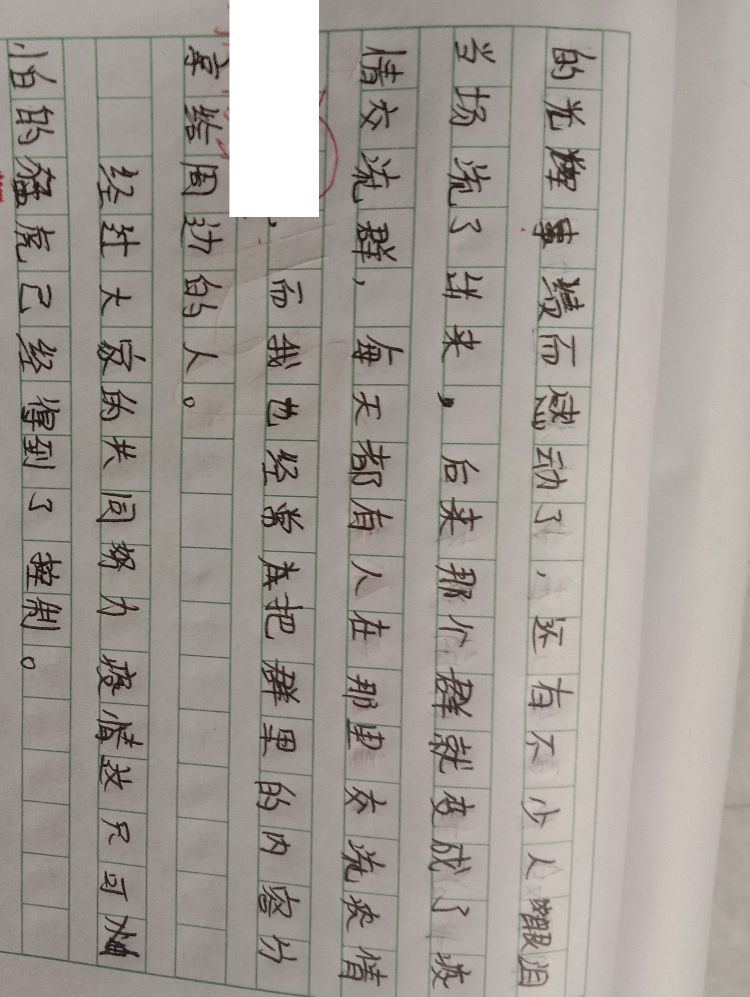 的光辉事绩而感动了，还有不少人眼泪
当场流了出来，后来那个群就变成了疫
情交流群，每天都有人在那里交流疫情
，而我也经常把群里的内容分
享给周边的人。
经过大家的共同努力疫情这只可
怕的猛虎已经得到了控制。